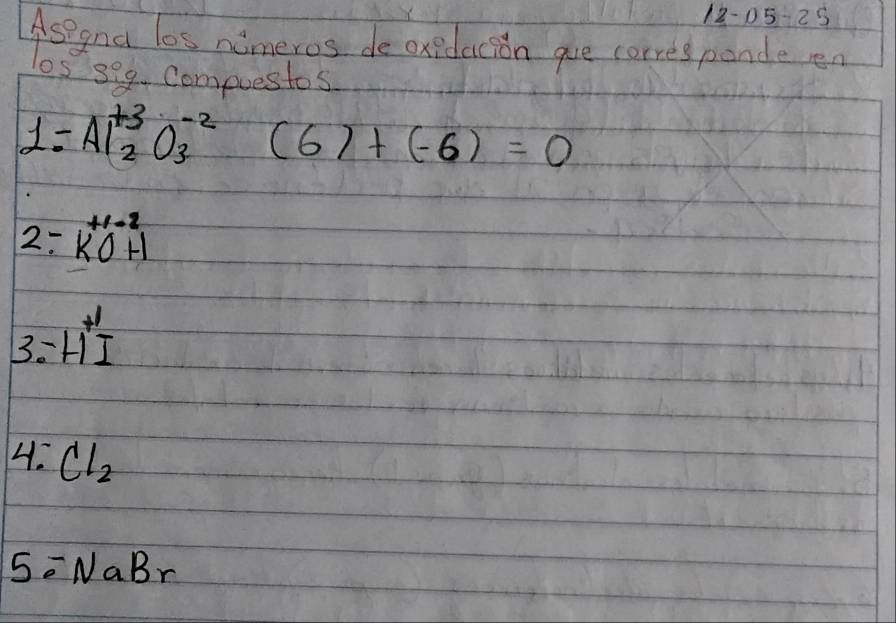 12-05-25
Asigna los números de oxidación que corresponde en
los sig. compuestos.
1.- Al₂⁺³ O₃⁻² (6) + (-6) = 0
2.- K⁺¹O⁻²H
3.- H⁺¹I
4.- Cl₂
5.- NaBr